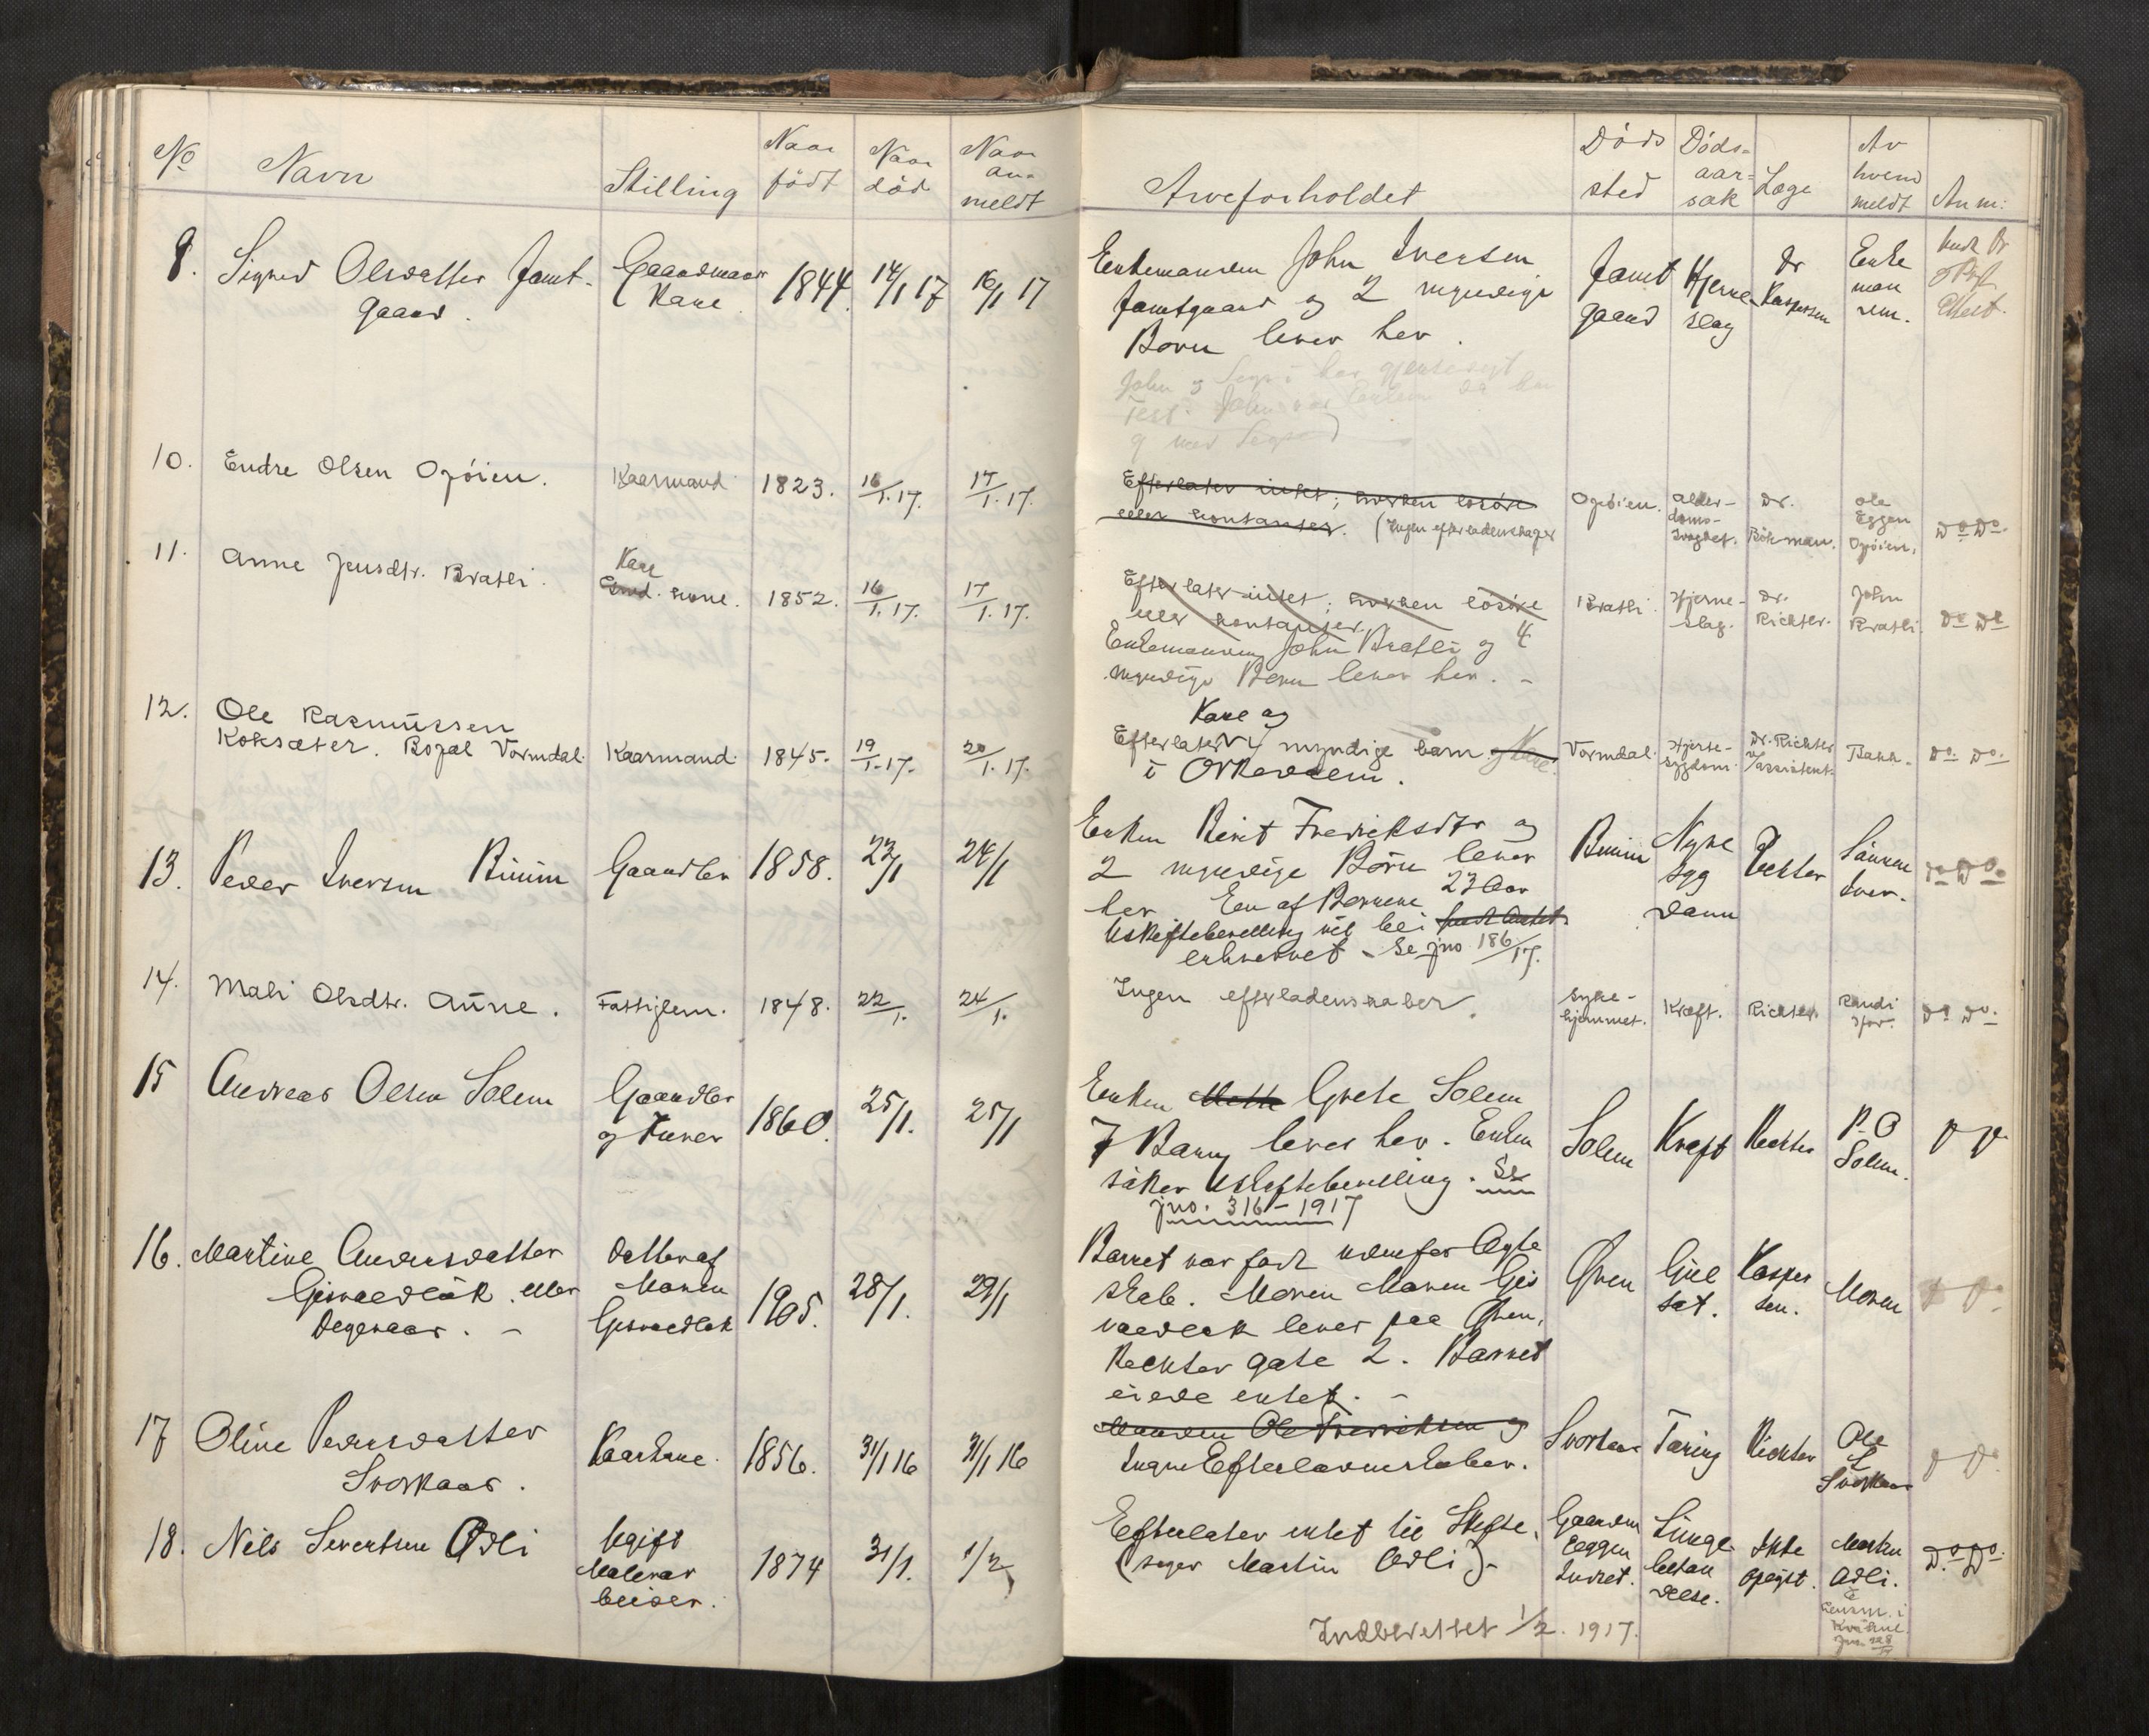 No
Navn
Stilling
Naar født
Naar død
Naar an- meldt
Arveforholdet
Døds sted
Døds- aar- sak
Læge
Av hvem meldt
Anm:
9. Sigrid Olsdatter Jamt-
gaard.
Gaardmands
Kane
1844.
14/1 17
16/1 17
Enkemanden John Iversen
Jamtgaard og 2 myndige
Børn lever her.
Jamt
gaard
Hjerne
slag
Dr
Kaspersen
Enke
man
den.
John og Sigrid har gjensidigt
Test. John var
g med Sigrid
10. Endre Olsen Opöien.
Kaarmand
1823.
16/1. 17.
17/1. 17.
Efterlater intet; hverken lösöre
eller kontanter. (Ingen efterladenskaper
Opöien.
Alder-
doms-
svaghet.
Dr.
Bökman.
Ole
Eggen
Opöien.
Do Do
11. Anne Jensdtr. Bratli.
Kaar
Gmd. kone.
1852.
16/1. 17.
17/1. 17.
Efterlater intet; hverken lösöre
eller kontanter.
Enkemanden John Bratli og 4
myndige Børn lever her. -
Bratli.
Hjerne-
slag.
Dr.
Richter.
John
Bratli.
Do Do
12. Ole Rasmussen
Koksæter. Bopæl Vormdal.
Kaarmand.
1845.
19/1. 17.
20/1. 17.
Kane og
Efterlater 4 myndige barn.
i Orkedalen.
Vormdal.
Hjerte-
sygdom.
Dr. Richter
v/assistent.
Do. Do.
13. Peder Iversen Bimin
Gaardbr
1858.
23/1
24/1
Enken Berit Fredriksdtr og
2 myndige Børn lever
her En af Børnene 23 Aar
Uskiftebevilling vil bli
erhvervet - Se jno 186/17.
Nyre
syg
dom
Richter
Do Do
14. Mali Olsdtr. Aune.
Fattiglem.
1848.
22/1.
24/1.
Ingen efterladenskaber.
Syke-
hjemmet.
Kræft.
Richter.
Randi
Do Do.
15 Andreas Olsen Solem
Gaardbr
og
1860.
25/1.
25/1
Enken Mette Grete Solem
7 Barn lever her. Enken
söker Uskiftebevilling. Se
jno. 316 - 1917
Solem
Kræft
Richter
P. O
Solem.
D D
16. Martine Andersdatter
Gjsvoldlök. eller
Degeraas. -
Datter af
Maren
Gjsvoldlök
1905.
28/1.
29/1
Barnet var født udenfor Ægte
skab. Moren Maren Gjs
voldlök lever paa Øren,
Richter gate 2. Barnet
eiede intet. -
Øren
Gul
sot.
Kasper
sen.
Moren
D D
17 Oline Pedersdatter
Svorkaas.
Kaarkane.
1856.
31/1 16
31/1 16
Manden Ole Fredriksen og
Ingen Efterladenskaber.
Svorkaas
Tæring
Richter
Ole
Svorkaas
D D
18. Nils Sivertsen Ødli
Ugift
Malerar
beider.
1874
31/1.
1/2
Efterlater intet til Skifte.
(siger Martin Ødli)-
Gaarden
Eggen
Indset.
Lunge
betæn
delse.
Ikke
opgit.
Martin
Ødli.
Lensm. i
Do Do.
Indberettet 1/2. 1917.